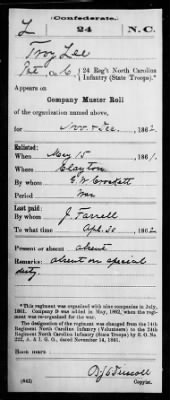 (Confederate.)
L 24 N.C.
Troy Lee
Pvt, Co. C, 24 Reg't North Carolina
Infantry (State Troops).*
Appears on
Company Muster Roll
of the organization named above,
for Nov. & Dec., 1862
Enlisted:
When May 15, 1861.
Where Clayton
By whom
Period War
Last paid:
By whom J. Farrell
To what time Apl. 30, 1862
Present or absent absent
Remarks: absent on special
duty.
*This regiment was organized with nine companies in July,
1861. Company D was added in May, 1862, when the regiment
was re-organized for the war.
The designation of the regiment was changed from the 14th
Regiment North Carolina Infantry (Volunteers) to the 24th
Regiment North Carolina Infantry (State Troops) by S. O. No.
222, A. & I. G. O., dated November 14, 1861.
Book mark:
(642)
Copyist.